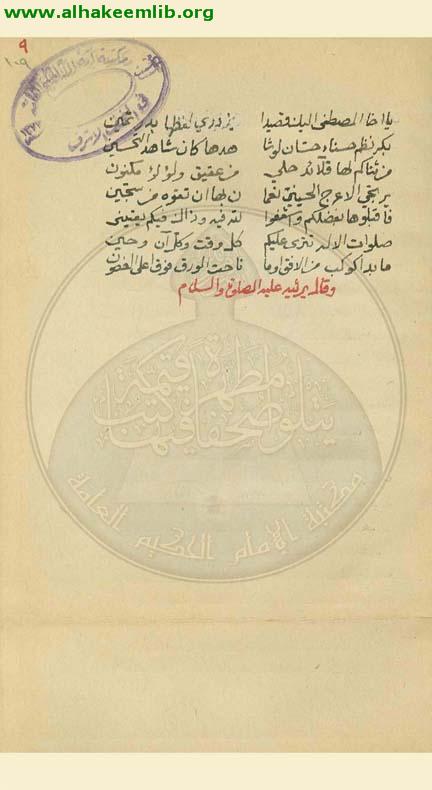 www.alhakeemlib.org
٩
١٠٩
يا اخا المصطفى اليك قصيدا يزدري لفظها بدر الثمين
بكر نظم حسناء حسان لو شا هدها كان شاهد التحسين
من ثناكم لها قلائد حلي من عقيق ولؤلؤ مكنون
يرتجي الاعرج الحسيني نعما ن لها ان تفوه من سجين
فاقبلوها بفضلكم واشفعوا لترقيه وذاك فيكم يقيني
صلوات الاله تترى عليكم كل وقت وكل آن وحين
ما بدا كوكب من الافق او ما ناحت الورق فوق اعلى الغصون
وقال يرثيه عليه الصلوة والسلام
يتلو صحفا مطهرة فيها كتب قيمة
مكتبة الإمام الحكيم العامة